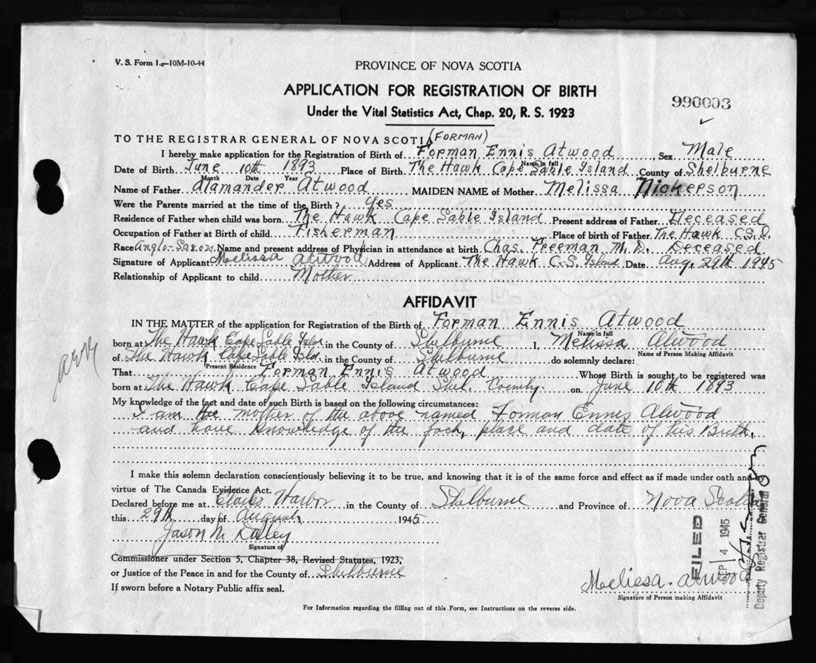 V. S. Form 1.-10M-10-44
PROVINCE OF NOVA SCOTIA
APPLICATION FOR REGISTRATION OF BIRTH
990003
Under the Vital Statistics Act, Chap. 20, R. S. 1923
TO THE REGISTRAR GENERAL OF NOVA SCOTIA (FORMAN)
I hereby make application for the Registration of Birth of Forman Ennis Atwood Sex Male
Name in full
Date of Birth June 10th 1893 Place of Birth The Hawk Cape Sable Island County of Shelburne
Month Date Year
Name of Father Alamander Atwood MAIDEN NAME of Mother Melissa Nickerson
Were the Parents married at the time of the Birth? Yes
Residence of Father when child was born The Hawk Cape Sable Island Present address of Father Deceased
Occupation of Father at Birth of child Fisherman Place of birth of Father The Hawk C.S.I.
Race Anglo-Saxon Name and present address of Physician in attendance at birth Chas. Freeman M.D. Deceased
Signature of Applicant Melissa Atwood Address of Applicant The Hawk C.S. Island Date Aug. 29th 1945
Relationship of Applicant to child Mother
AFFIDAVIT
IN THE MATTER of the application for Registration of the Birth of Forman Ennis Atwood
Name in full
born at The Hawk Cape Sable Isle in the County of Shelburne I, Melissa Atwood
Name of Person Making Affidavit
of The Hawk Cape Sable Isld. in the County of Shelburne do solemnly declare:
Present Residence
That Forman Ennis Atwood Whose Birth is sought to be registered was
born at The Hawk Cape Sable Island Shel. County on June 10th 1893
My knowledge of the fact and date of such Birth is based on the following circumstances:
I am the mother of the above named Forman Ennis Atwood
and have knowledge of the fact, place and date of his Birth.
I make this solemn declaration conscientiously believing it to be true, and knowing that it is of the same force and effect as if made under oath and
virtue of The Canada Evidence Act.
Declared before me at Clarks Harbor in the County of Shelburne and Province of Nova Scotia
this 29th day of August 1945
Jason M.
Signature of
Commissioner under Section 5, Chapter 38, Revised Statutes, 1923,
or Justice of the Peace in and for the County of Shelburne
If sworn before a Notary Public affix seal.
Melissa Atwood
Signature of Person making Affidavit
FILED
SEP 14 1945
Deputy Registrar General
For Information regarding the filling out of this Form, see Instructions on the reverse side.